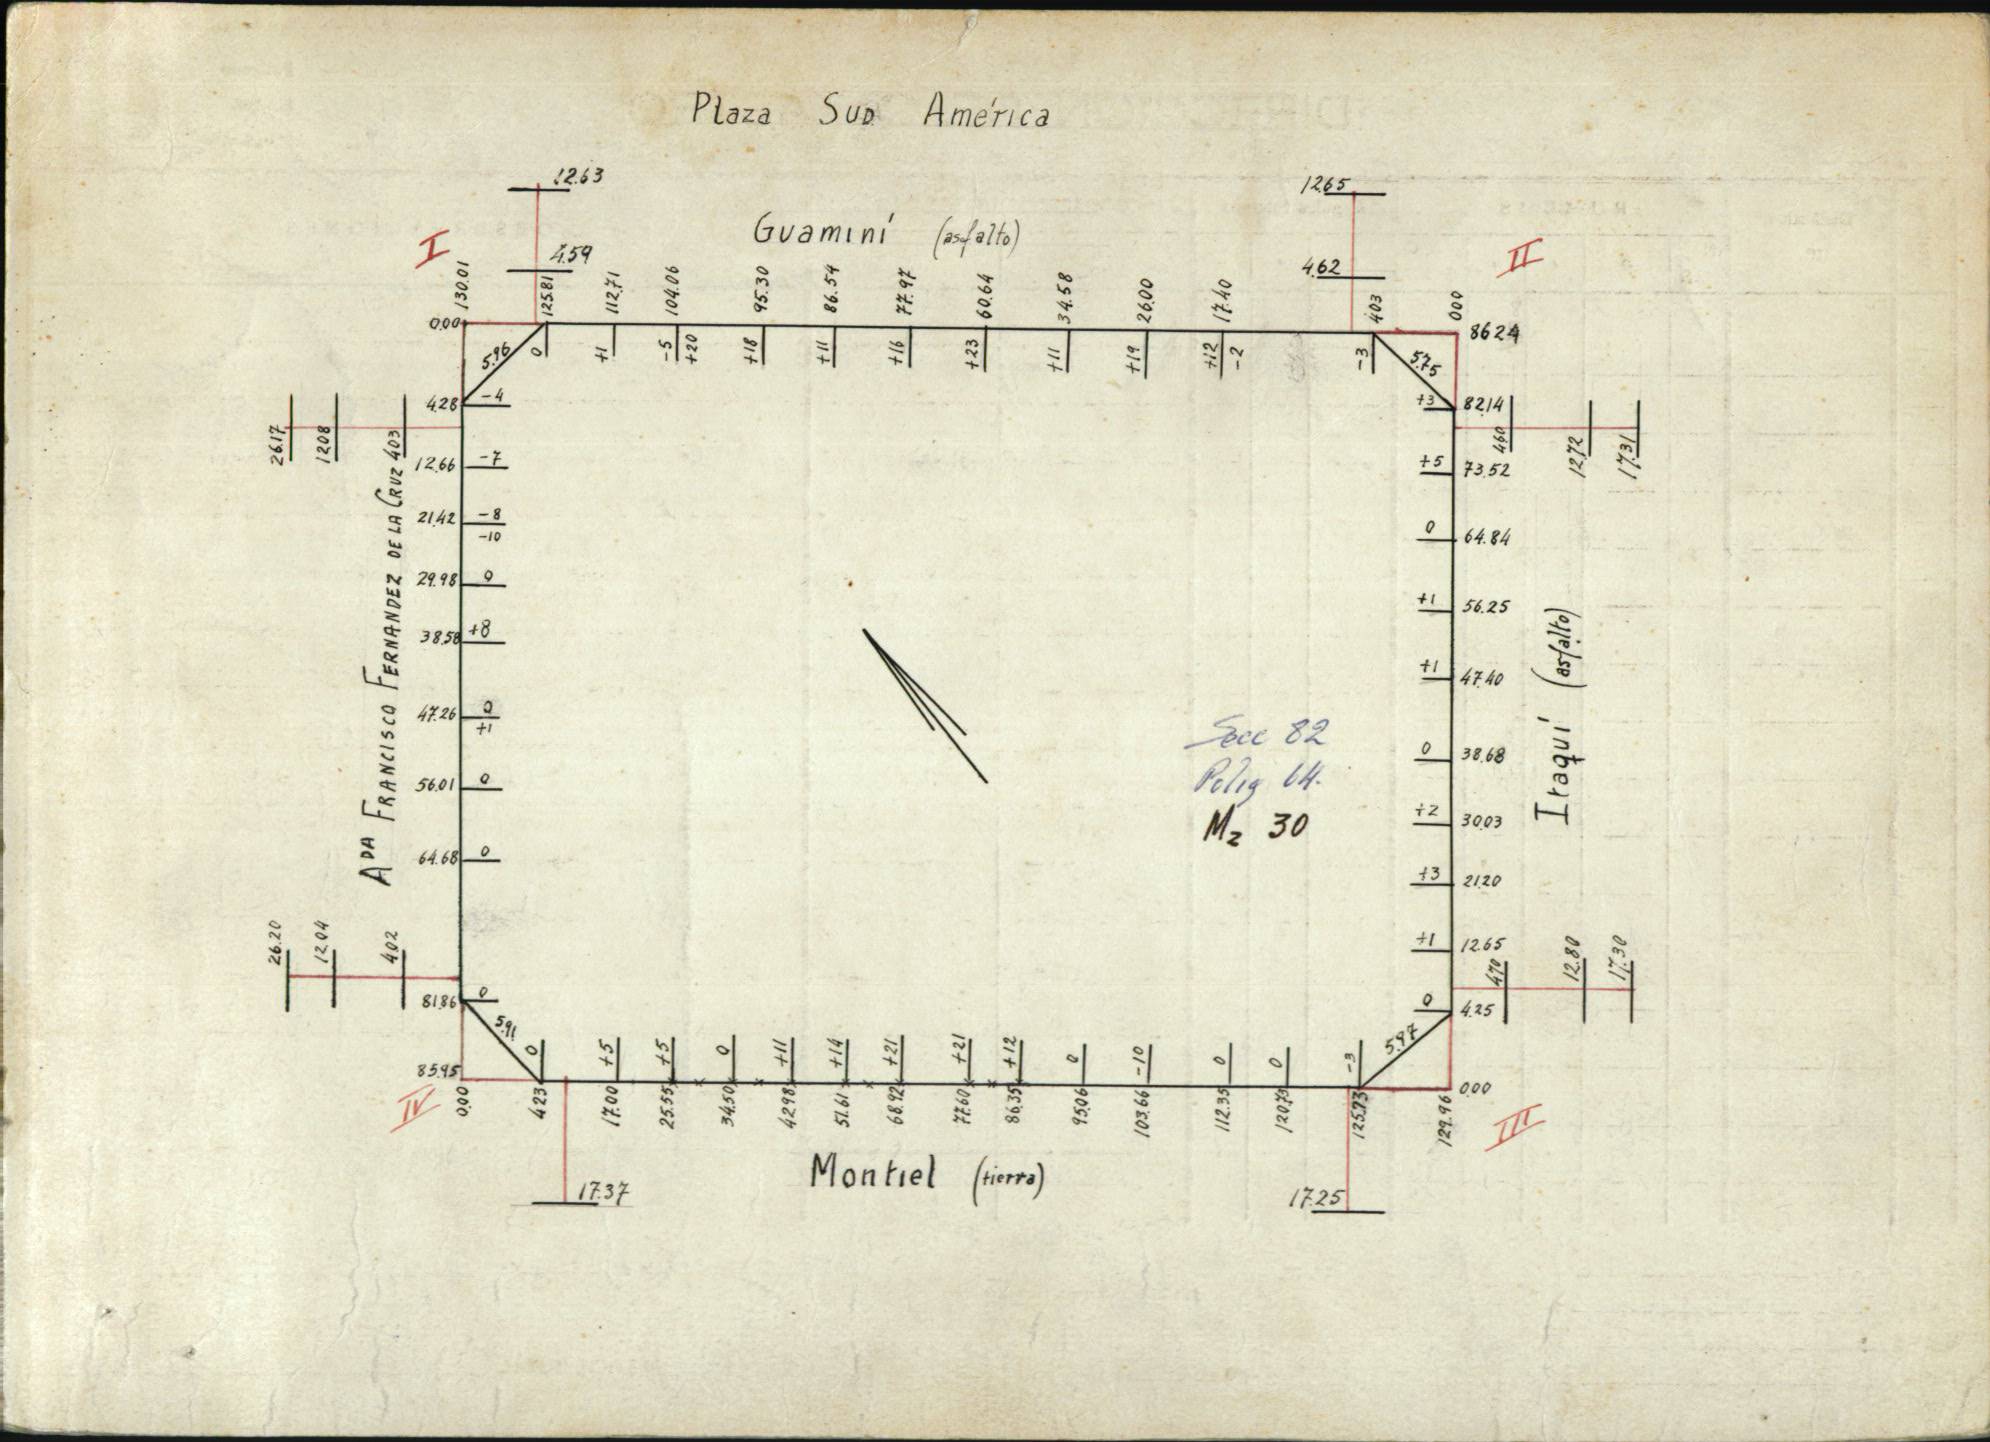 Plaza Sud América
12.63
12.65
Guaminí (asfalto)
I
II
4.59
4.62
130.01
125.81
112.71
104.06
95.30
86.54
77.97
60.64
34.58
26.00
17.40
4.03
0.00
0.00
86.24
0
+1
-5
+20
+18
+11
+16
+23
+11
+19
+12
-2
-3
5.96
5.75
4.28 -4
+3 82.14
26.17
12.08
4.03
4.60
12.72
17.31
12.66 -7
+5 73.52
21.42 -8
-10
0 64.84
29.98 0
+1 56.25
38.58 +8
+1 47.40
47.26 0
+1
0 38.68
56.01 0
+2 30.03
64.68 0
+3 21.20
+1 12.65
Ada Francisco Fernandez de la Cruz
Itaquí (asfalto)
Secc 82
Polig 64.
Mz 30
26.20
12.04
4.02
4.70
12.80
17.30
81.86 0
0 4.25
5.91
5.97
0
+5
+5
0
+11
+14
+21
+21
+12
0
-10
0
0
-3
85.95
0.00
IV
III
0.00
4.23
17.00
25.55
34.50
42.98
51.61
68.92
77.60
86.35
95.06
103.66
112.35
120.73
125.73
129.96
Montiel (tierra)
17.37
17.25